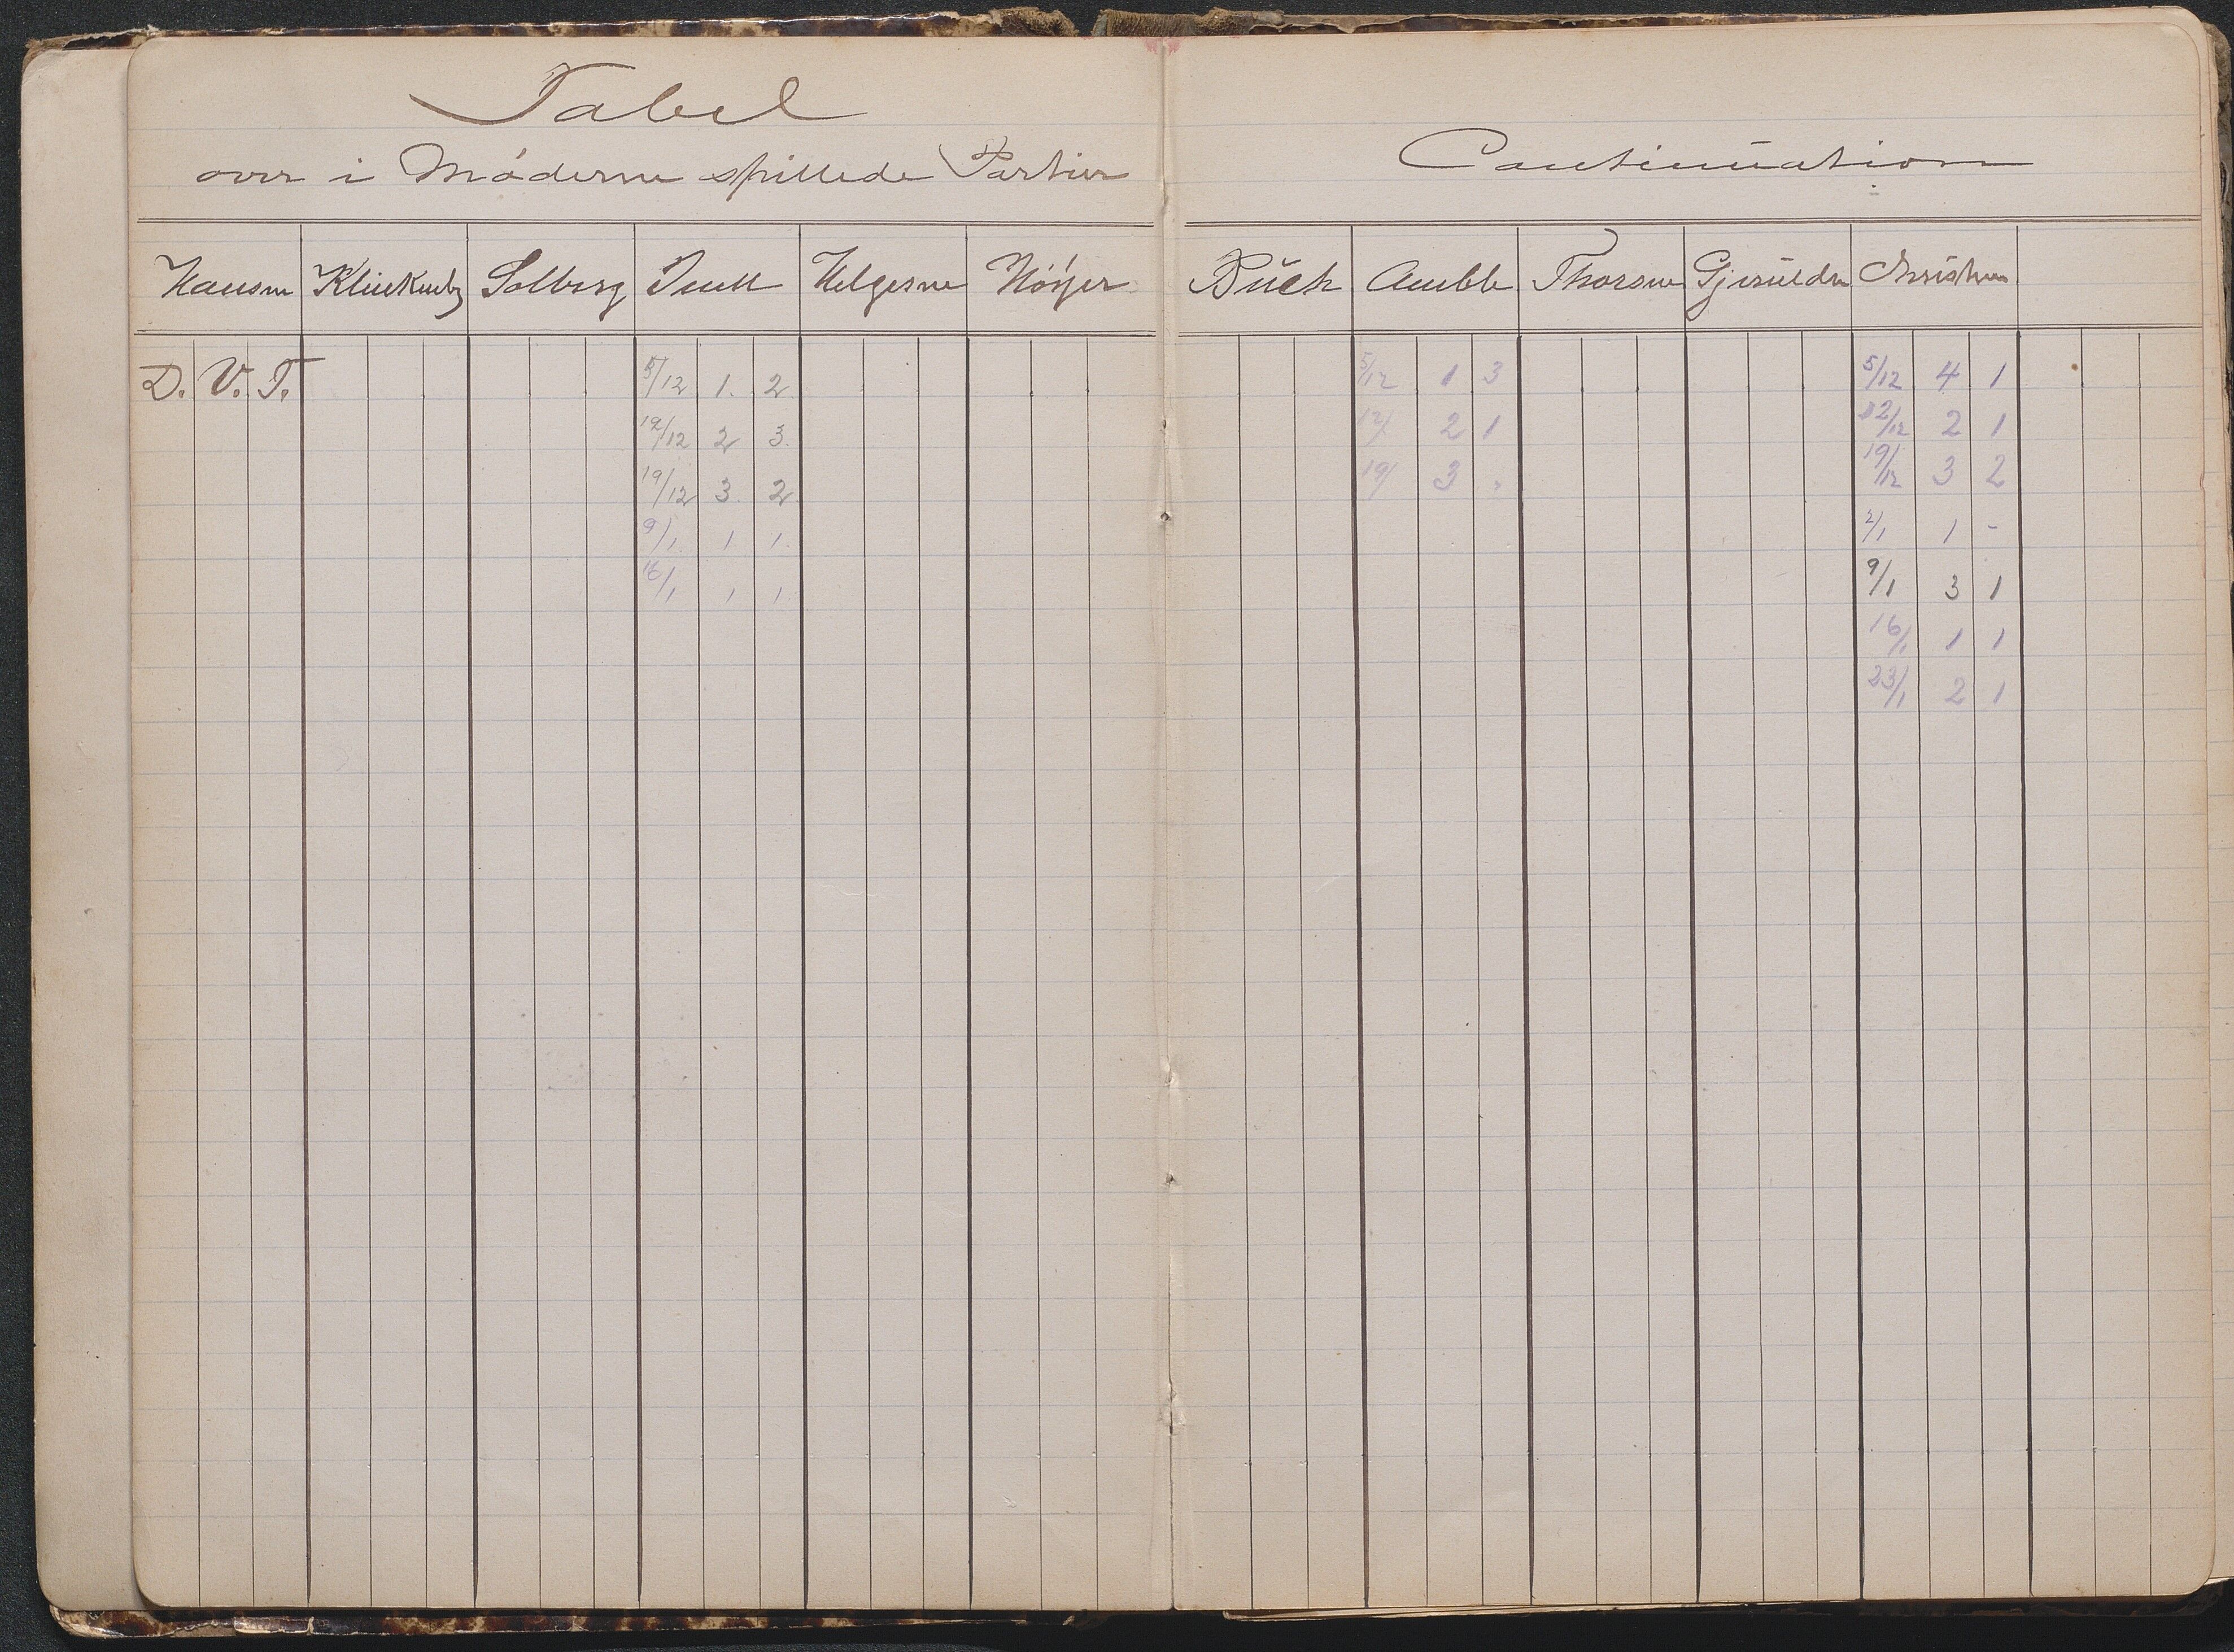 Tabel
over i Møderne spillede Partier
Hansen Klinkenberg Solberg Juell Helgesen Höyer
D. V. T. 5/12 1. 2
12/12 2 3.
19/12 3. 2
9/1 1 1.
16/1 1 1
Continuation
Buch Amble Thorsen Christensen
5/12 1 3 5/12 4 1
12/ 2 1 12/12 2 1
19/ 3 - 19/12 3 2
2/1 1 -
9/1 3 1
16/1 1 1
23/1 2 1